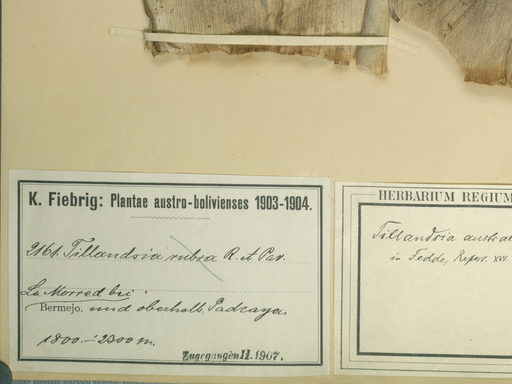 K. Fiebrig: Plantae austro-bolivienses 1903-1904.
2161. Tillandsia rubra R. et Pav.
bei
Bermejo. und oberhalb. Padcaya.
1800.-2300 m.
Zugegangen 11. 1907.
HERBARIUM REGIUM
Tillandsia austral
in Fedde, Repert. XVI.